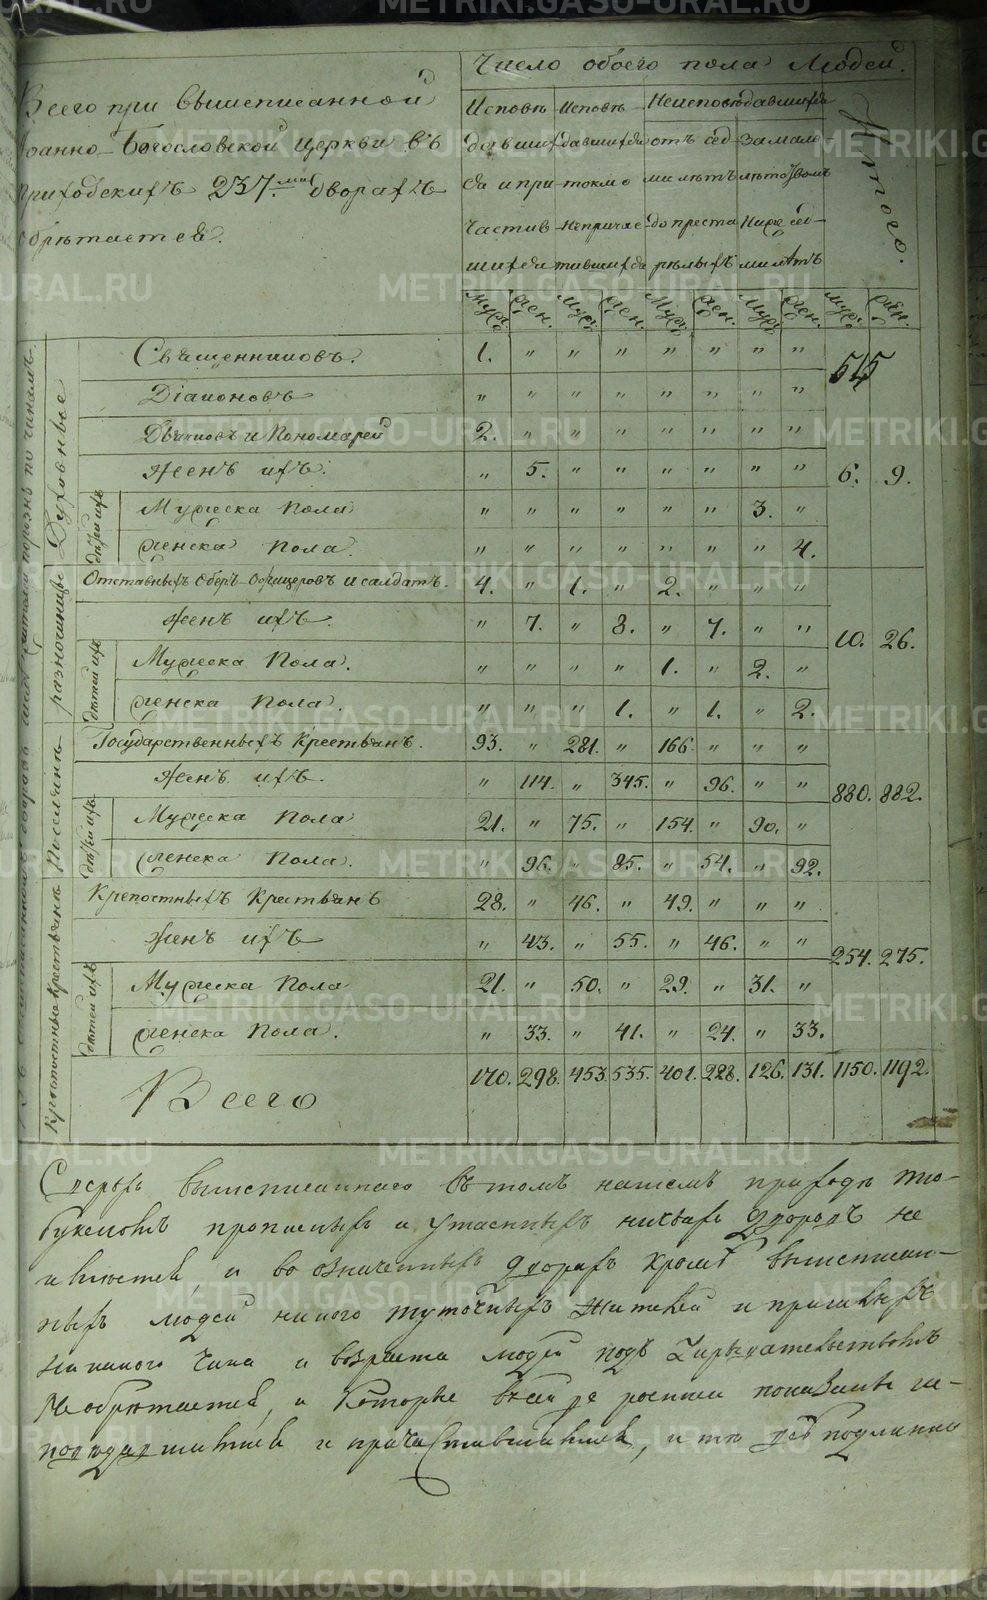 METRIKI.GASO-URAL.RU
Число обоего пола людей.
Всего при вышеписанной
Иоанно-Богословской церкви въ
приходскихъ 237.ми дворахъ
обрѣтается.
Исповѣ- Исповѣ- Неисповѣдавшихся Итого.
давших давшихся отъ сед- за мало
ся и при- токмо ми лѣтъ лѣтством
частив- непричас- до преста- ниже се-
шихся тившихся рѣлыхъ ми лѣтъ
Муж. Жен. Муж. Жен. Муж. Жен. Муж. Жен. Муж. Жен.
Духовные
Священниковъ. 1. " " " " " " "
Діаконовъ " " " " " " " "
Дьячковъ и Пономарей 2. " " " " " " "
Женъ ихъ. " 5. " " " " " " 6. 9.
дѣтей ихъ
Мужеска пола " " " " " " 3. "
Женска пола. " " " " " " " 4.
разночинцы
Отставныхъ Оберъ-Офицеровъ и солдатъ. 4. " 1. " 2. " " "
Женъ ихъ. " 7. " 8. " 7. " " 10. 26.
дѣтей ихъ
Мужеска пола. " " " " 1. " 2. "
Женска пола. " " " 1. " 1. " 2.
Государственныхъ Крестьянъ. 93. " 281. " 166. " " "
Женъ ихъ. " 114. " 345. " 96. " " 880. 882.
дѣтей ихъ
Мужеска пола 21. " 75. " 154. " 90. "
Женска пола. " 96. " 85. " 54. " 92.
Крепостные Крестьяне
Крепостныхъ Крестьянъ 28. " 46. " 49. " " "
Женъ ихъ " 43. " 55. " 46. " " 254. 275.
дѣтей ихъ
Мужеска пола 21. " 50. " 29. " 31. "
Женска пола. " 33. " 41. " 24. " 33.
Всего 170. 298. 453. 535. 401. 228. 126. 131. 1150. 1192.
Сверхъ вышеписаннаго въ томъ нашемъ приходѣ
прописныхъ и утаенныхъ дворовъ не
имѣется, и во означенныхъ дворахъ кромѣ вышеписан-
ныхъ людей никого жителей и
никакого чина и возраста людей подъ
не обрѣтается, и которые въ сей росписи показаны не-
и причастившимися, и тѣ подлинно